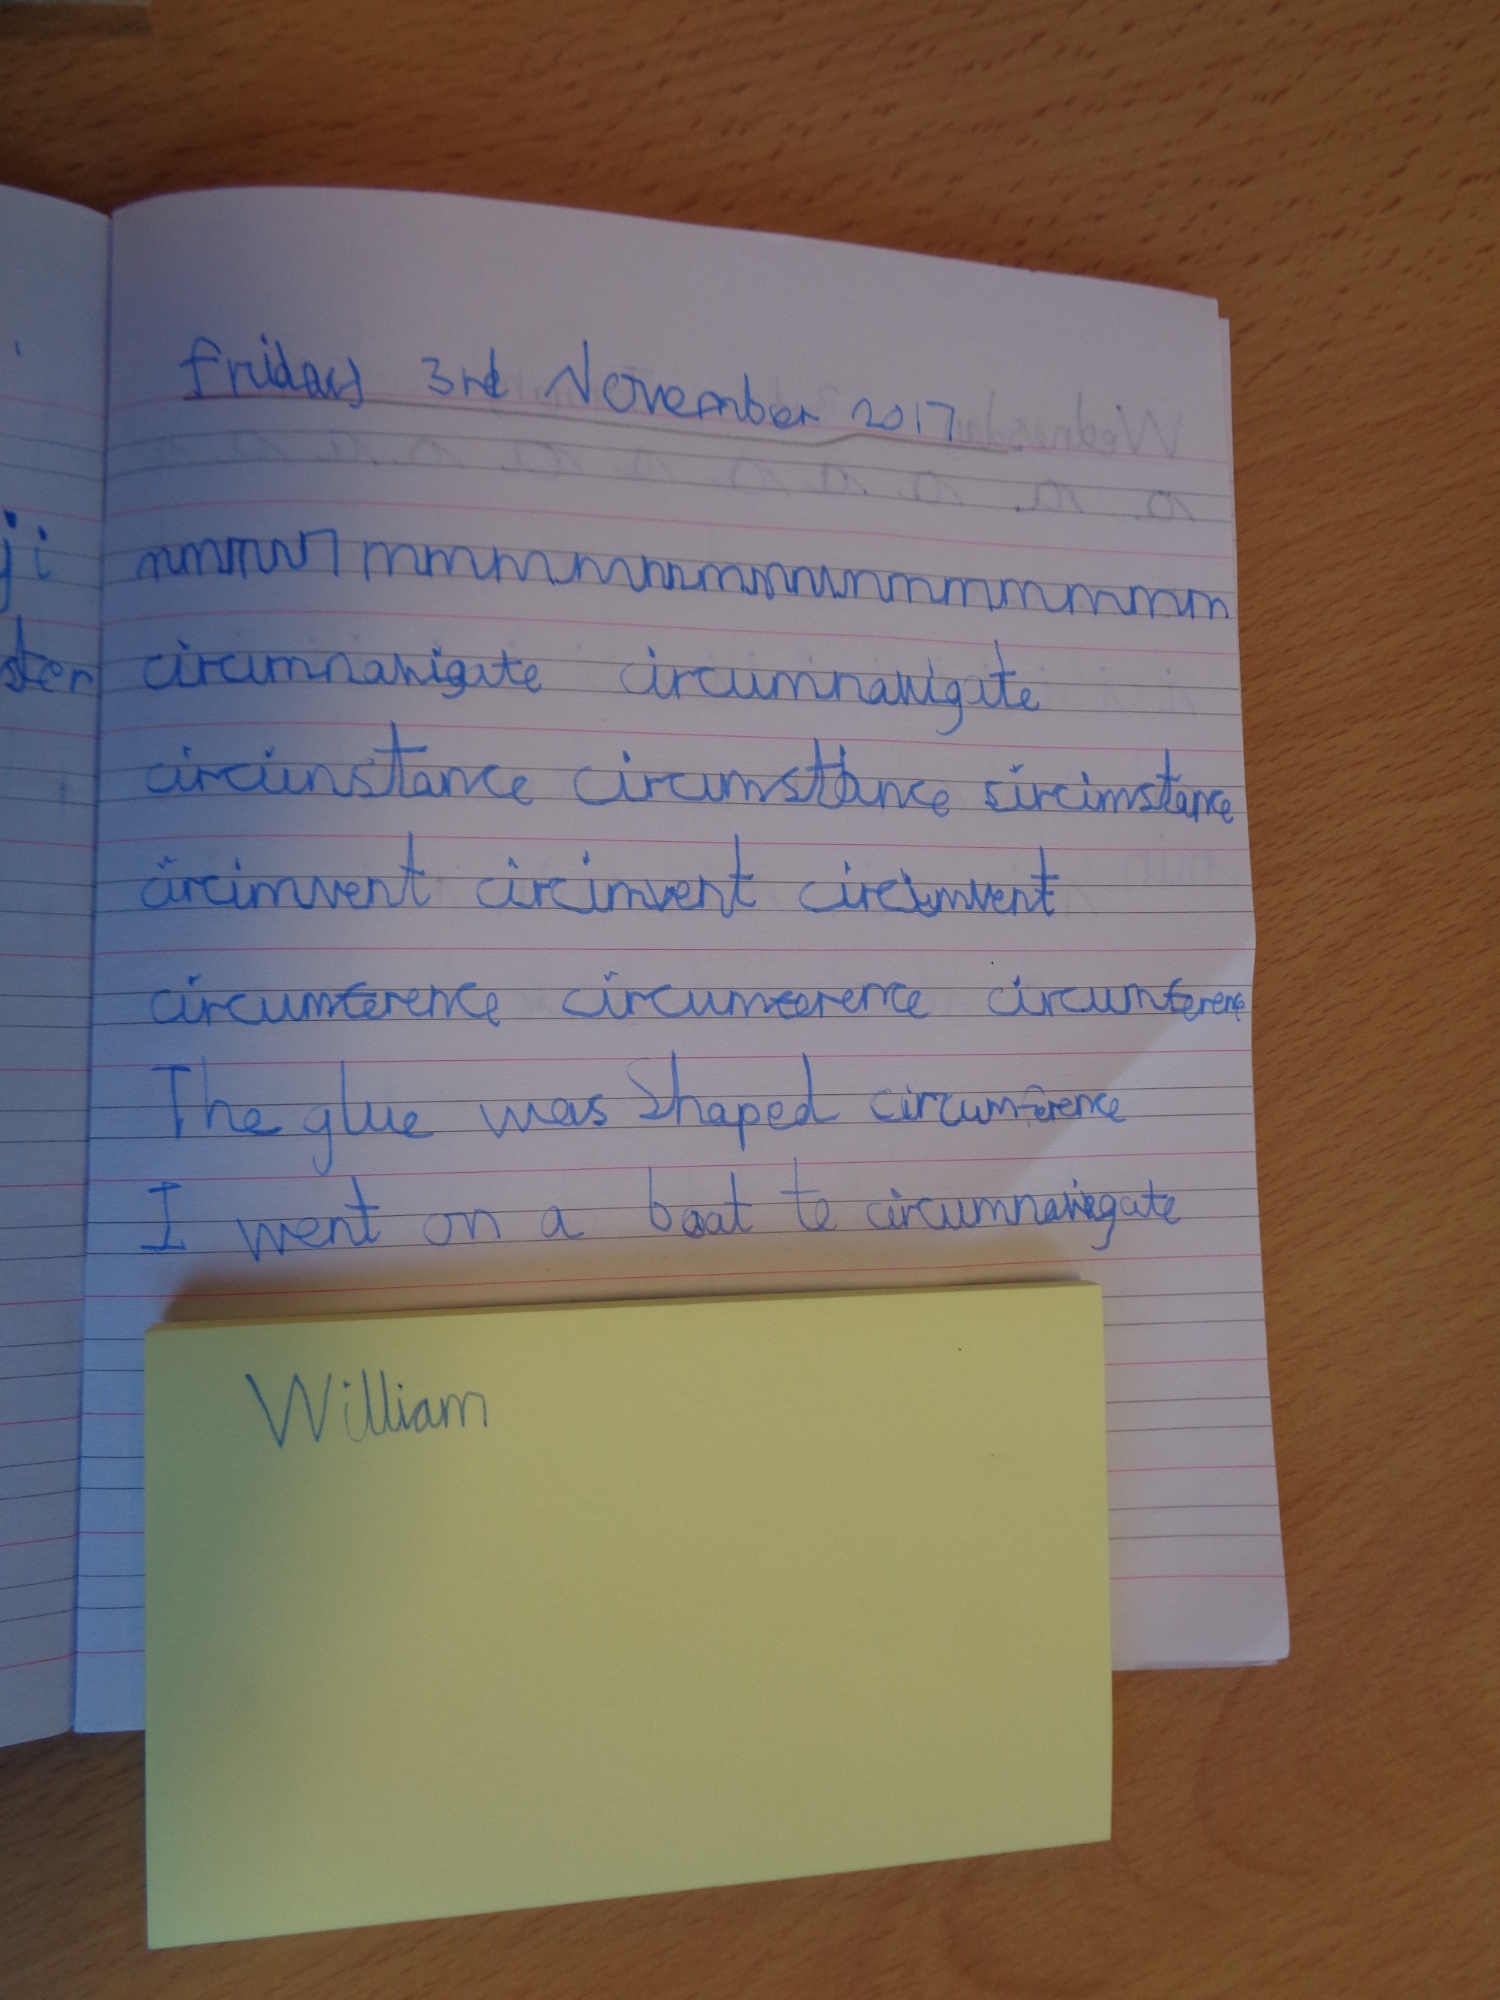 friday 3rd November 2017
ji
mmmm mmmmmmmmmmmmmmm
ster
circumnavigate circumnavigate
circumstance circumstance sircimstance
circimvent circimvent circumvent
circumference circumeerence circumference
The glue was Shaped circumference
I went on a boat to circumnavigate
William